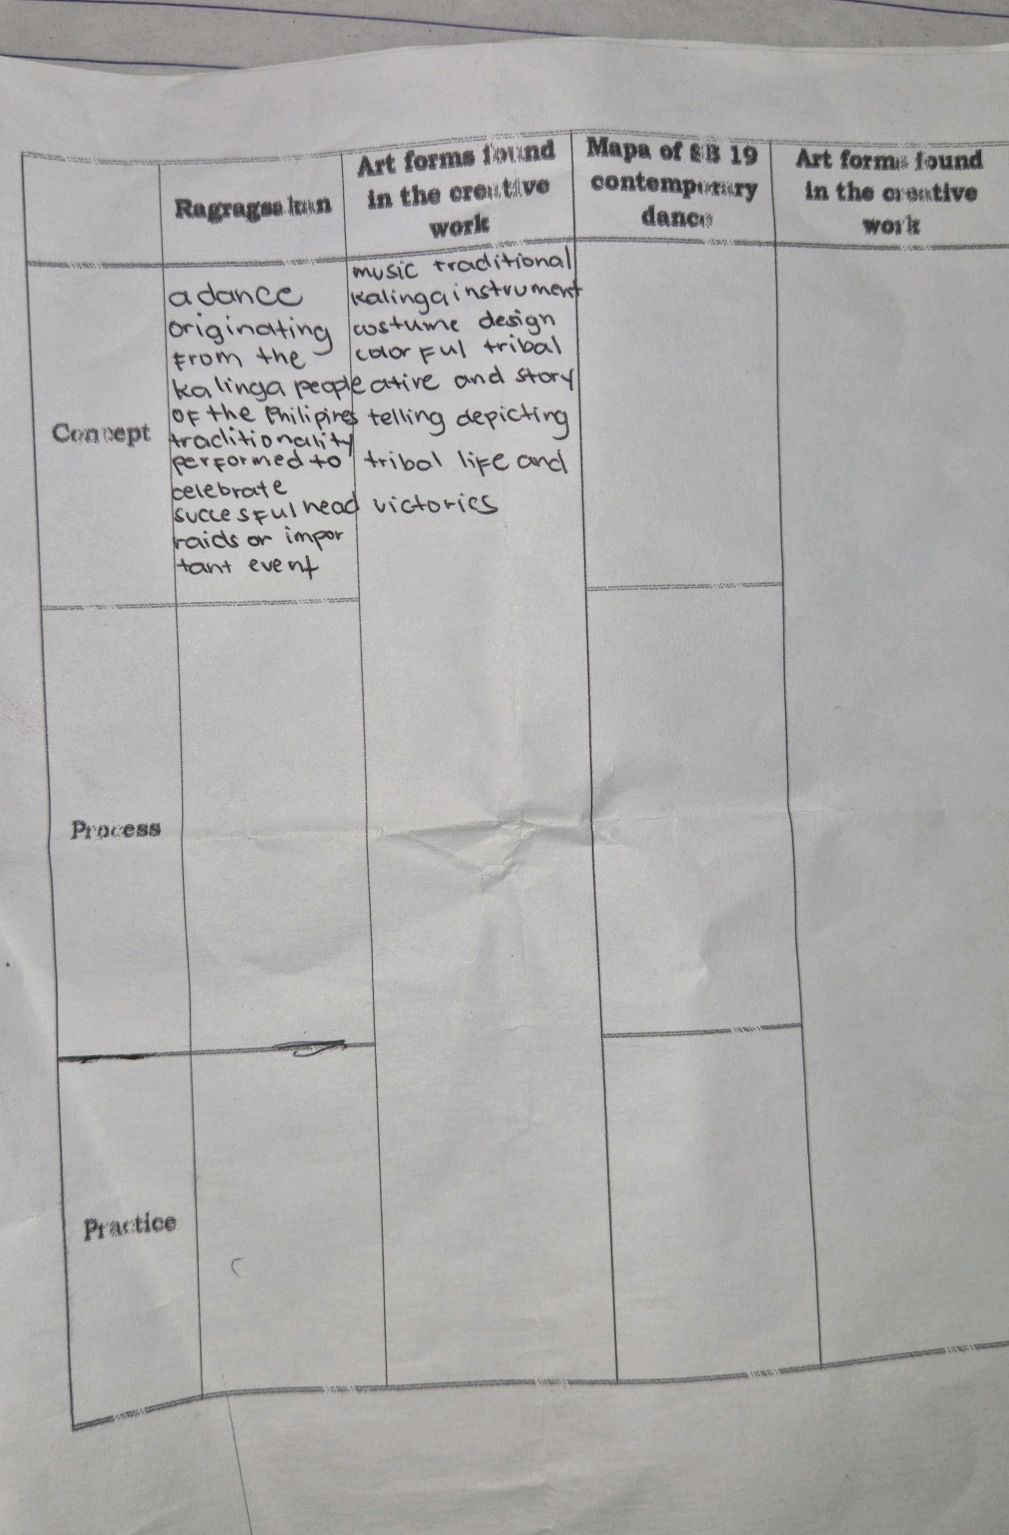 Ragragsakan
Art forms found
in the creative
work
Mapa of SB 19
contemporary
dance
Art forms found
in the creative
work
Concept
a dance
originating
from the
kalinga people
of the Philipines
traditionality
performed to
celebrate
succesful head
raids or impor
tant event
music traditional
kalinga instrument
costume design
colorful tribal
ative and story
telling depicting
tribal life and
victories
Process
Practice